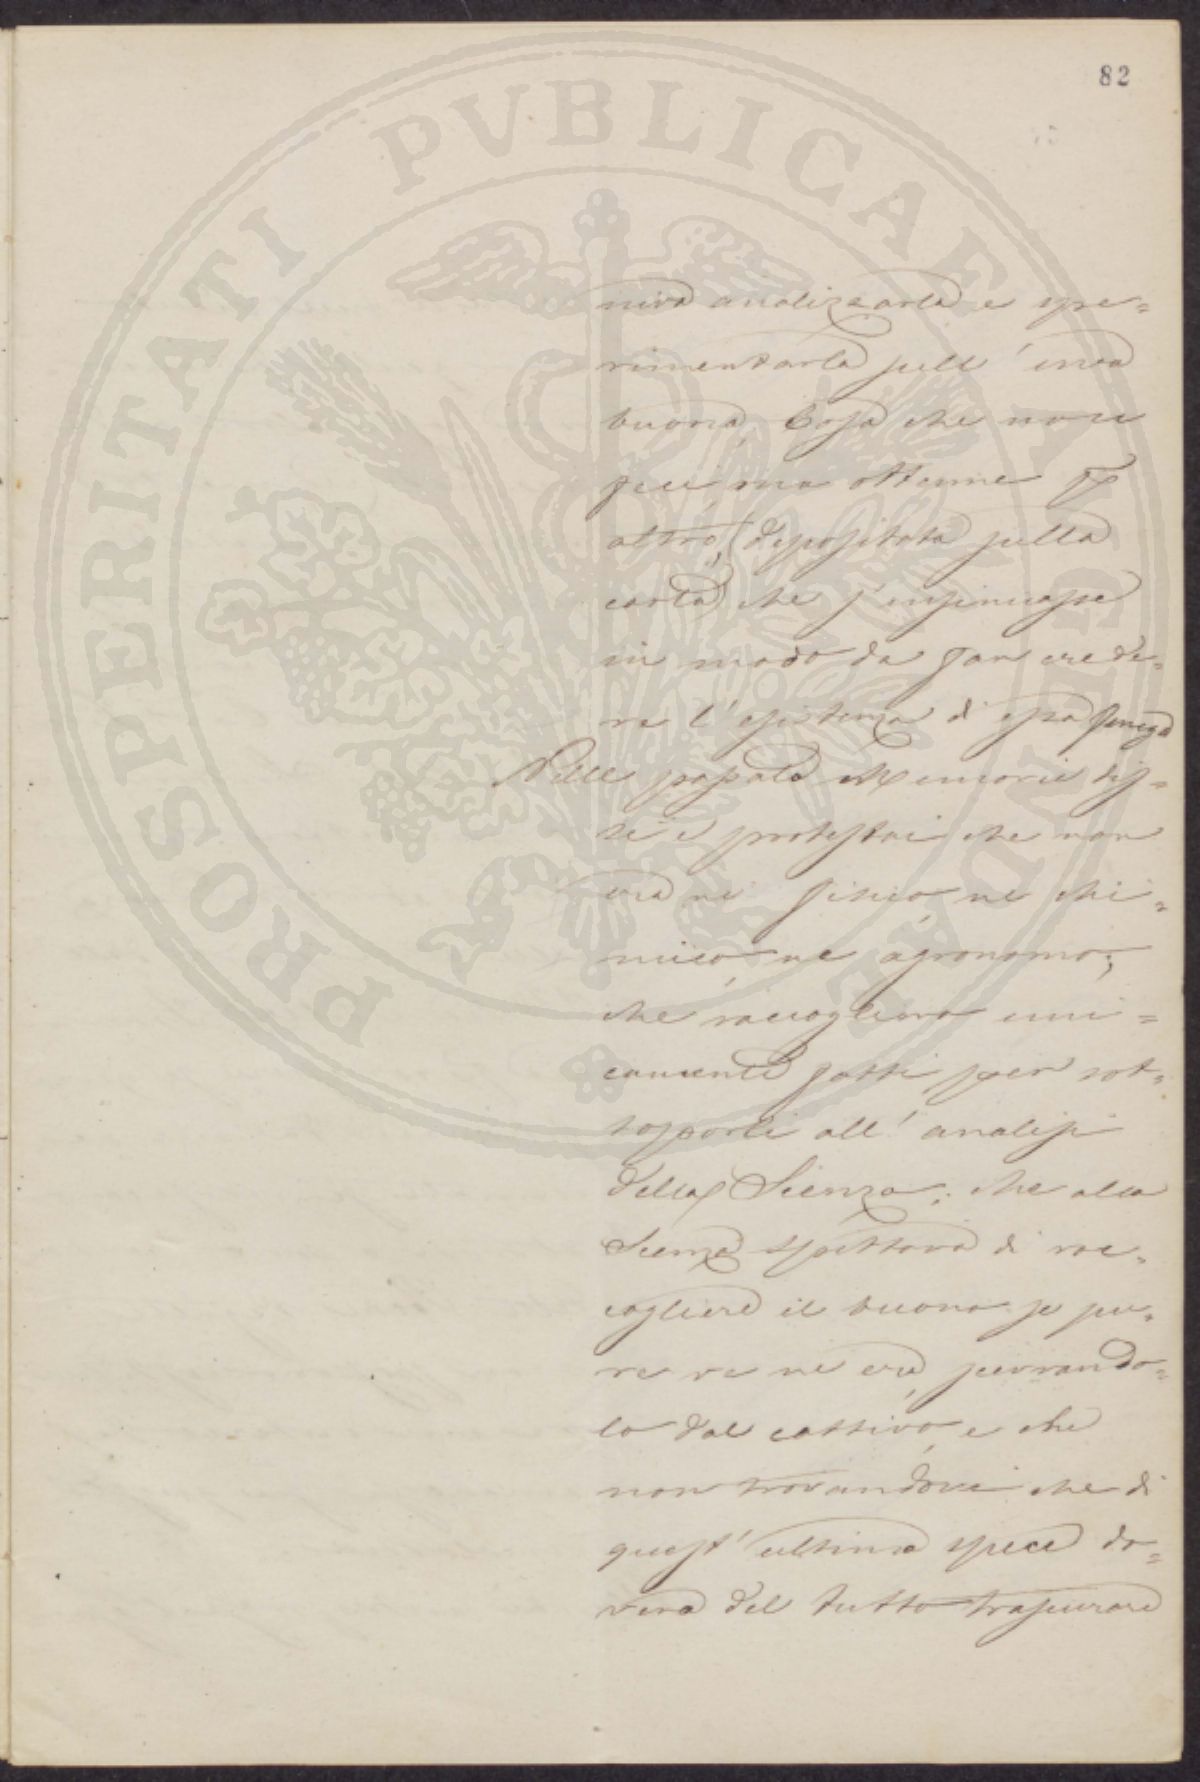 82
PROSPERITATI PVBLICAE AVGENDAE
niva analizzarla e spe=
rimentarla sull' uva
buona, Cosa che non
feci, ma ottenne p
altro, depositata sulla
carta, che s'insinuasse
in modo da far crede=
re l'esistenza di essa
Nelle passate Memorie dis=
si e protestai che non
era ne fisico, ne chi=
mico, ne agronomo;
che raccoglieva uni=
camente fatti per sot=
toporli all' analisi
della Scienza; che alla
Scienza spettava di rac=
cogliere il buono se pu=
re ve ne era, scevrando=
lo dal cattivo, e che
non trovandovi che di
quest' ultima spece do=
veva del tutto trascurare